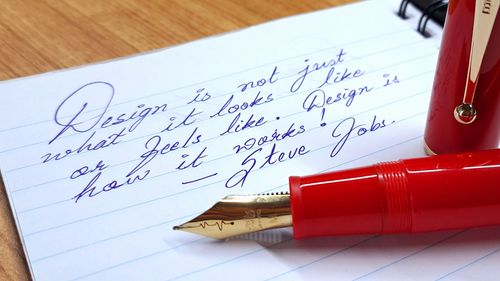 Design is not just
what it looks like
or feels like. Design is
how it works!
— Steve Jobs.